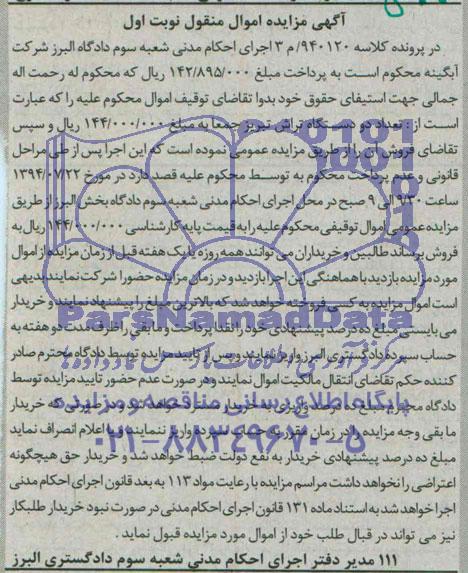 آگهی مزایده اموال منقول نوبت اول
در پرونده کلاسه ۹۴۰۱۲۰/ م ۳ اجرای احکام مدنی شعبه سوم دادگاه البرز شرکت
آبگینه محکوم است به پرداخت مبلغ ۱۴۲/۸۹۵/۰۰۰ ریال که محکوم له رحمت اله
جمالی جهت استیفای حقوق خود بدوا تقاضای توقیف اموال محکوم علیه را که عبارت
است از : تعداد دو دستگاه تراش تبریز جمعا به مبلغ ۱۴۴/۰۰۰/۰۰۰ ریال و سپس
تقاضای فروش آن را از طریق مزایده عمومی نموده است که این اجرا پس از طی مراحل
قانونی و عدم پرداخت محکوم به توسط محکوم علیه قصد دارد در مورخ ۱۳۹۴/۰۷/۲۲
ساعت ۹/۳۰ الی ۹ صبح در محل اجرای احکام مدنی شعبه سوم دادگاه بخش البرز از طریق
مزایده عمومی اموال توقیفی محکوم علیه را به قیمت پایه کارشناسی ۱۴۴/۰۰۰/۰۰۰ ریال به
فروش برساند طالبین و خریداران می توانند همه روزه تا یک هفته قبل از زمان مزایده از اموال
مورد مزایده بازدید با هماهنگی این اجرا بازدید و در زمان مزایده حضورا شرکت نمایند بدیهی
است اموال مزایده به کسی فروخته خواهد شد که بالاترین مبلغ را پیشنهاد نمایند و خریدار
می بایستی مبلغ ده درصد پیشنهادی خود را نقدا پرداخت و مابقی را ظرف مدت دو هفته به
حساب سپرده دادگستری البرز واریز نمایند و پس از تایید مزایده توسط دادگاه محترم صادر
کننده حکم تقاضای انتقال مالکیت اموال نمایند و در صورت عدم حضور تایید مزایده توسط
دادگاه محترم مبلغ ده درصد واریزی به خریدار مسترد خواهد شد و در صورتی که خریدار
ما بقی وجه مزایده را در زمان مقرر به حساب سپرده واریز ننمایند و یا اعلام انصراف نماید
مبلغ ده درصد پیشنهادی خریدار به نفع دولت ضبط خواهد شد و خریدار حق هیچگونه
اعتراضی را نخواهد داشت مراسم مزایده با رعایت مواد ۱۱۳ به بعد قانون اجرای احکام مدنی
اجرا خواهد شد به استناد ماده ۱۳۱ قانون اجرای احکام مدنی در صورت نبود خریدار طلبکار
نیز می تواند در قبال طلب خود از اموال مورد مزایده قبول نماید .
۱۱۱ مدیر دفتر اجرای احکام مدنی شعبه سوم دادگستری البرز
ParsNamadData
پایگاه اطلاع رسانی مناقصه و مزایده
۰۲۱-۸۸۳۴۹۶۷۰-۵